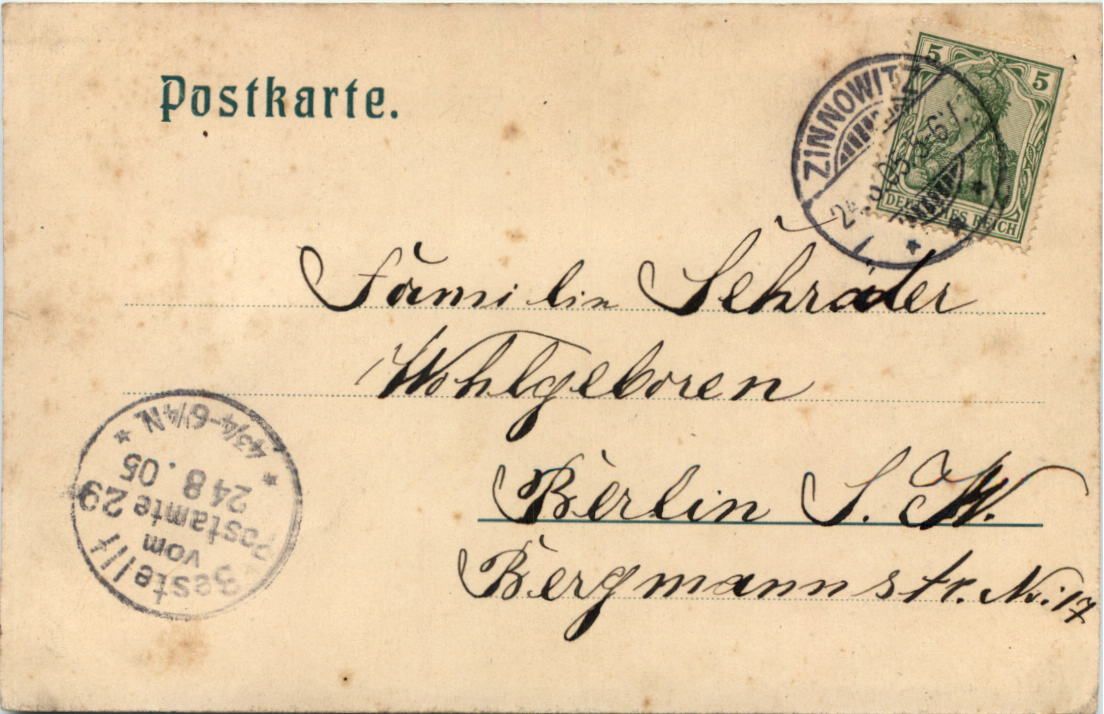 Postkarte.
5 5
DEUTSCHES REICH
ZINNOWITZ
24.8.05.5-6N.
Familie Schrader
Wohlgeboren
Berlin S.W.
Bergmannstr. No: 17
Bestellt
vom
Postamte 29
24 8. 05
4¾-6¼N.